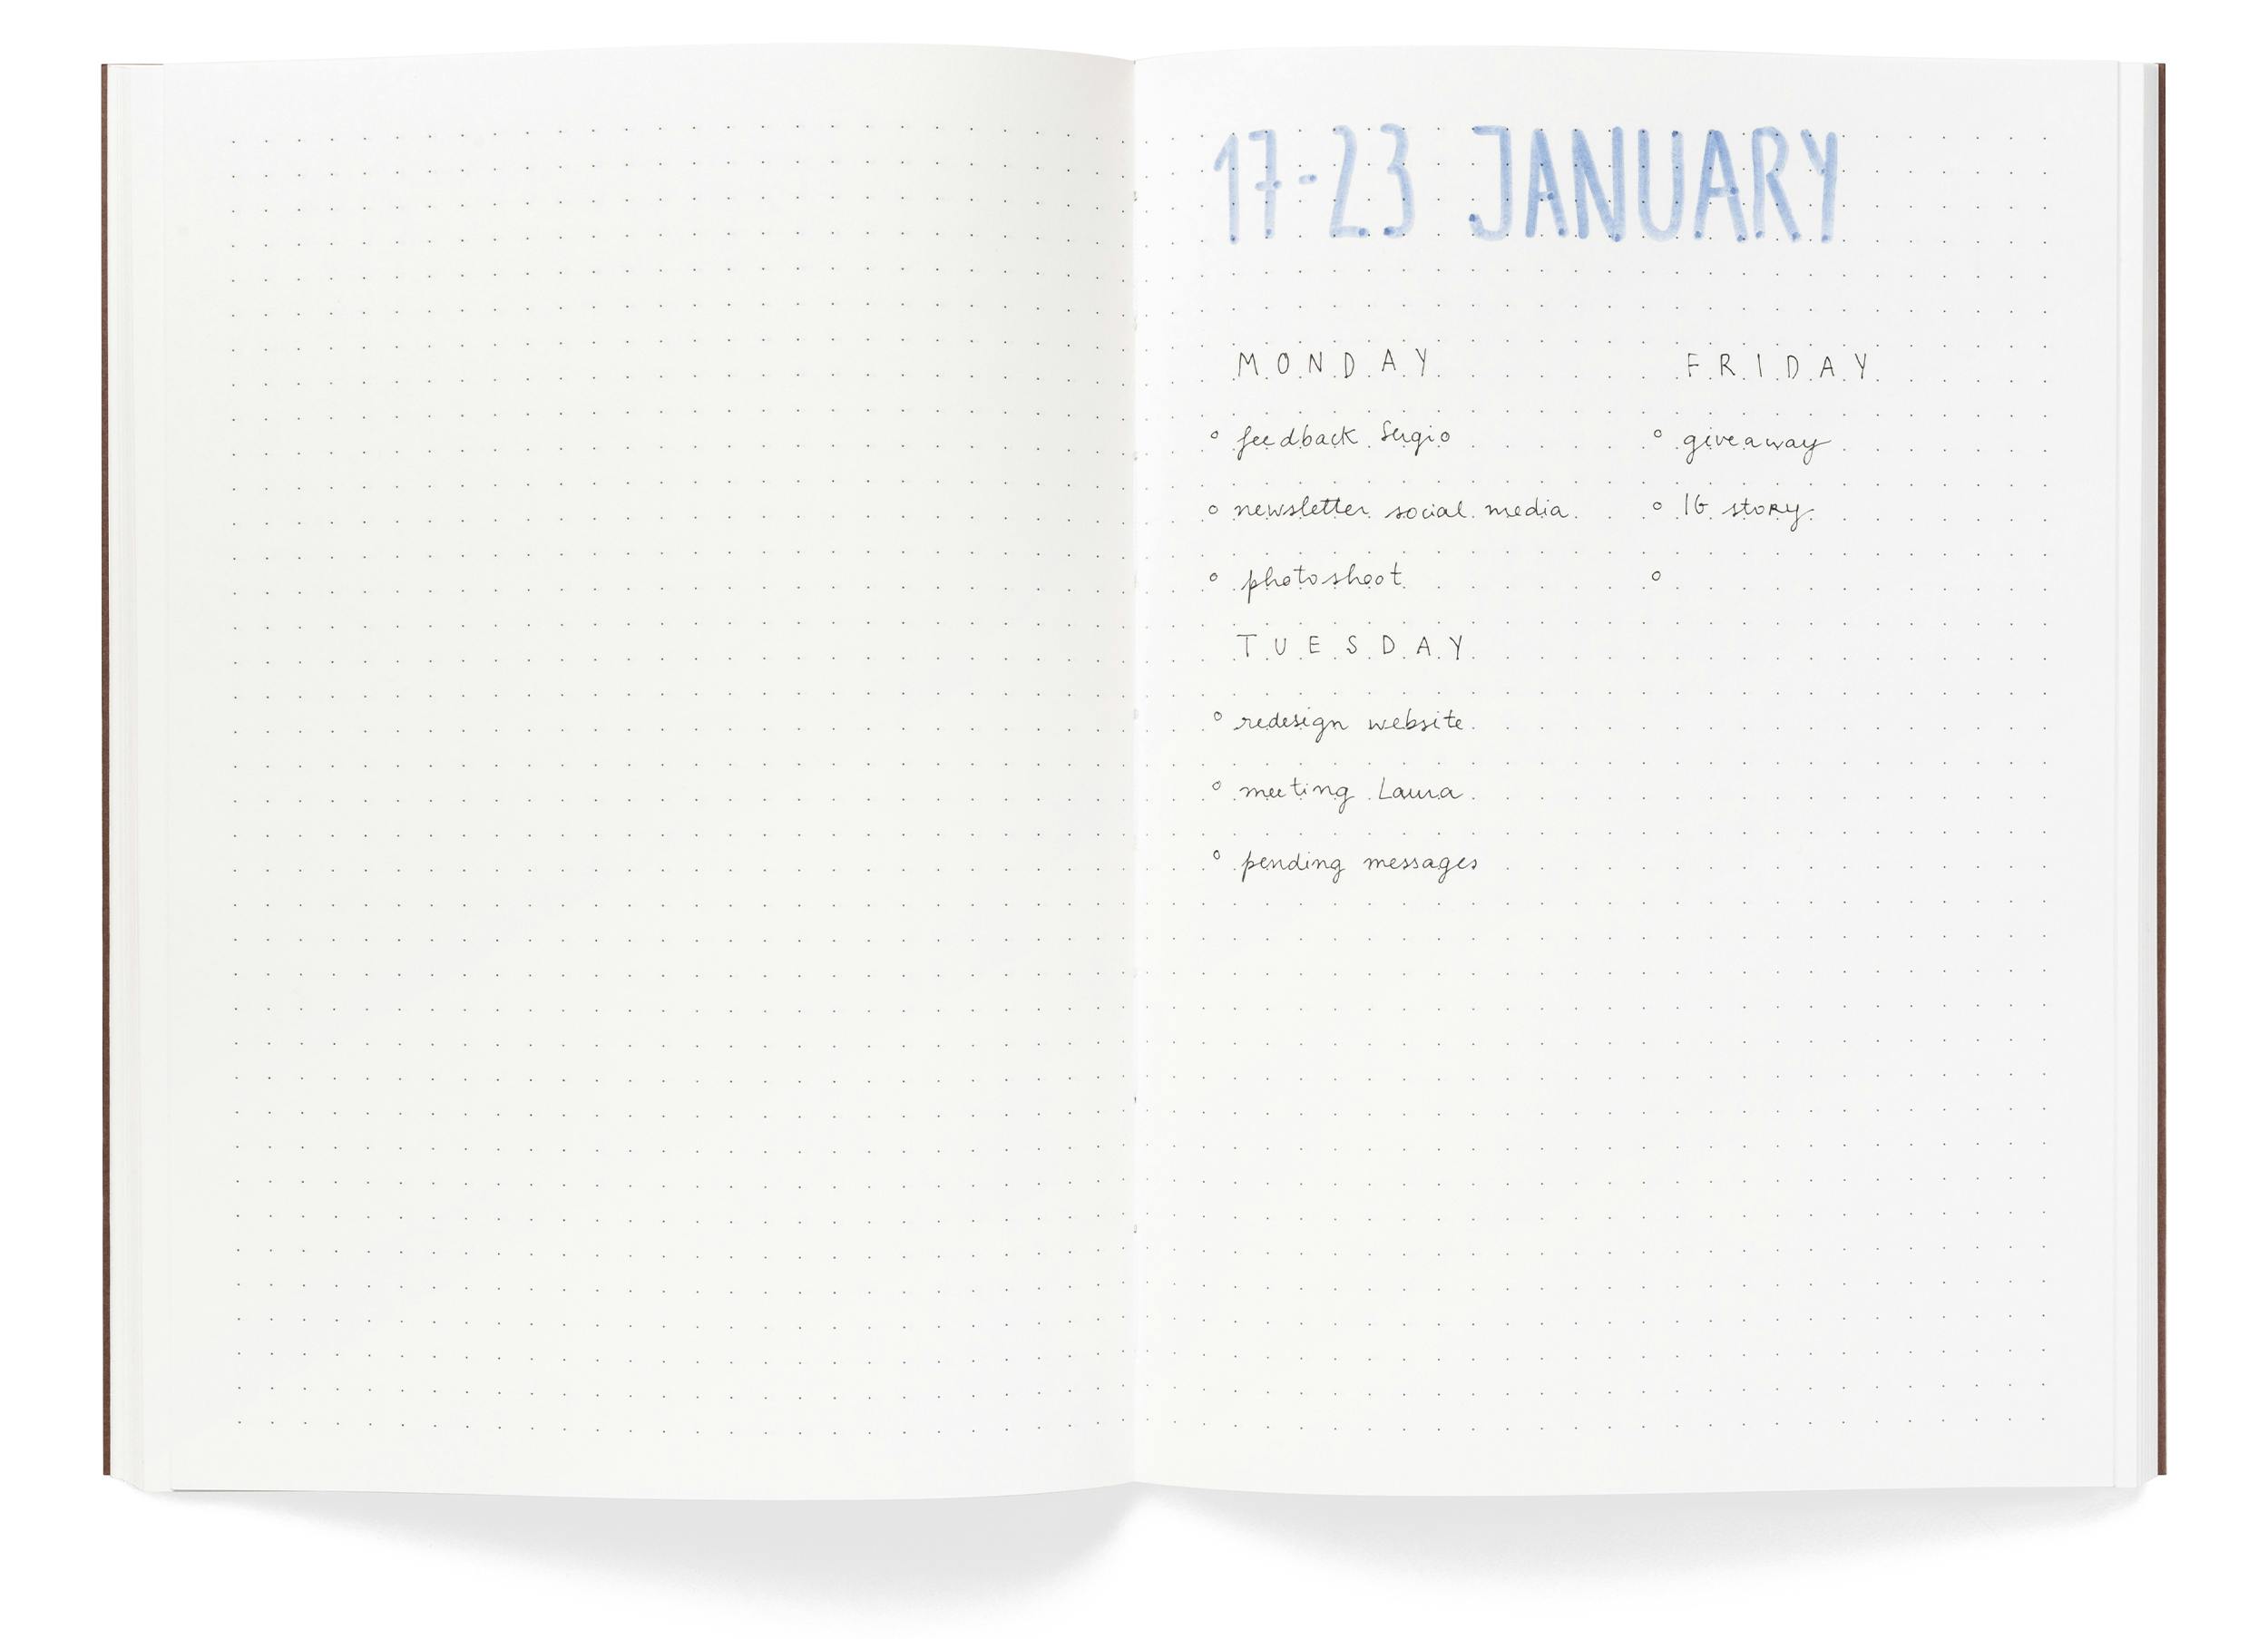 17-23 JANUARY
MONDAY
feedback Sergio
newsletter social media
photoshoot
TUESDAY
redesign website
meeting Laura
pending messages
FRIDAY
giveaway
IG story